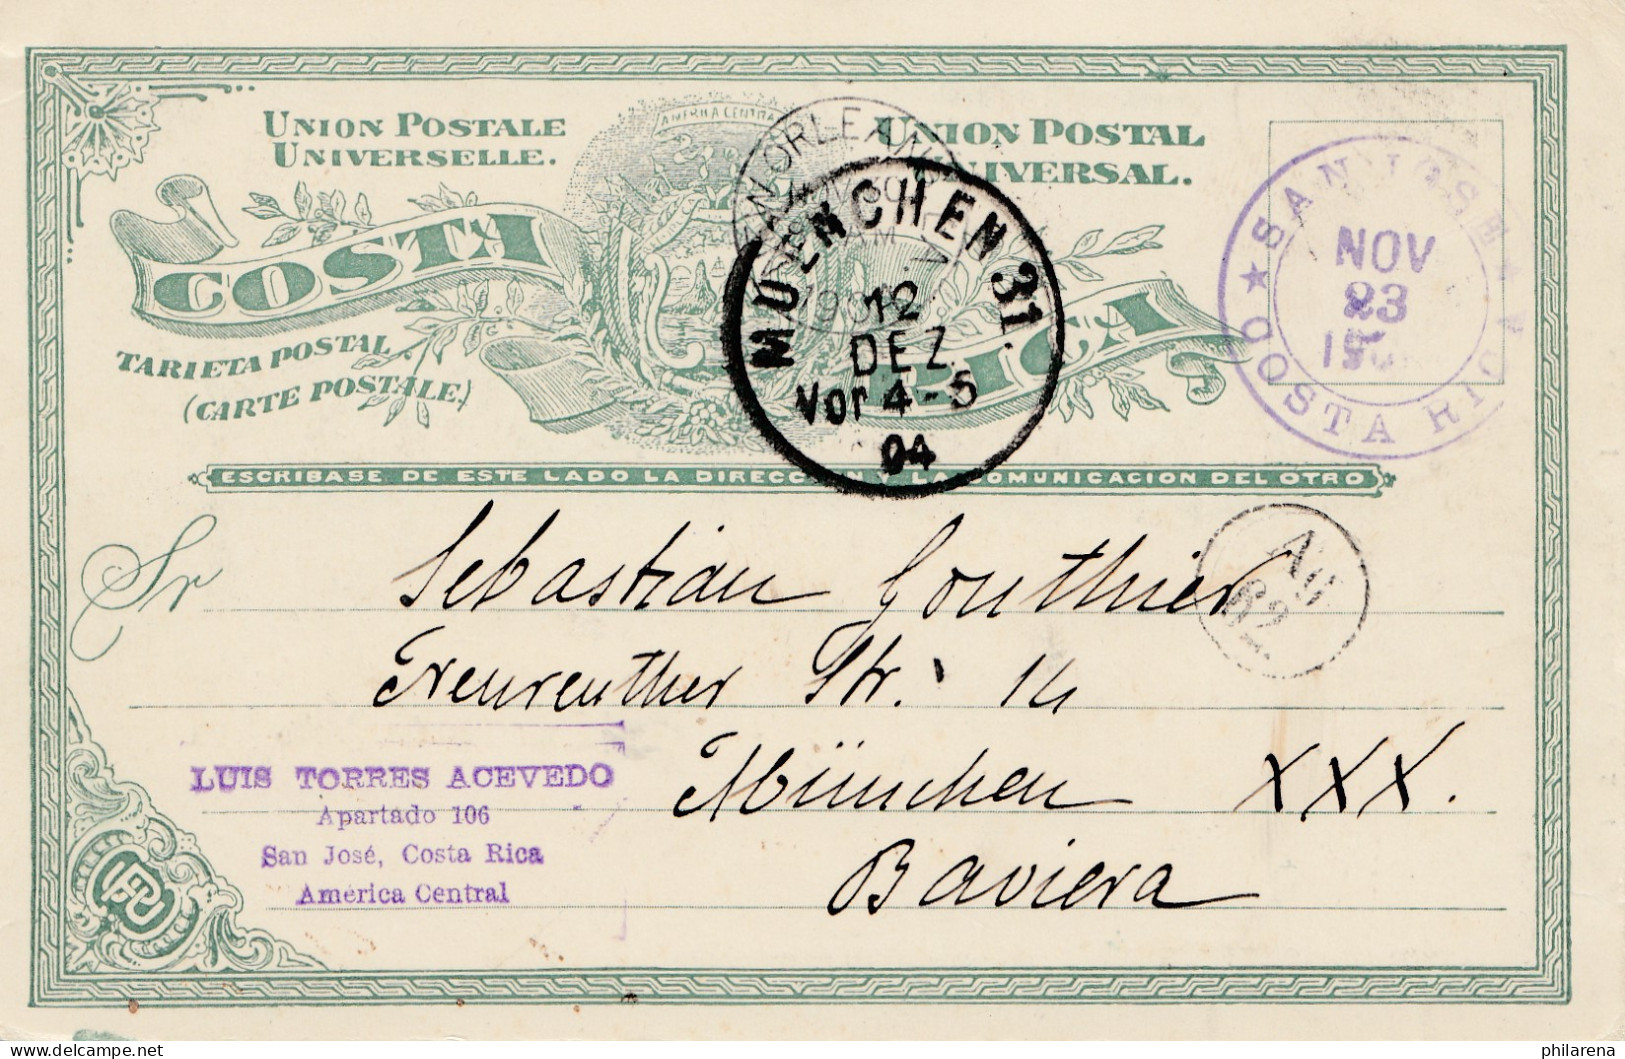 UNION POSTALE
UNIVERSELLE.
AMERICA CENTRAL
UNION POSTAL
UNIVERSAL.
COSTA RICA
TARJETA POSTAL
(CARTE POSTALE)
NEW ORLEANS
MUENCHEN 31.
12
DEZ
Vor 4-5
04
★ SAN JOSE ★ COSTA RICA
NOV
23
ESCRIBASE DE ESTE LADO LA DIRECCION Y LA COMUNICACION DEL OTRO
Sr Sebastian Gouthier
Neureuther Str. 14
München XXX.
Baviera
62
LUIS TORRES ACEVEDO
Apartado 106
San José, Costa Rica
América Central
philarena